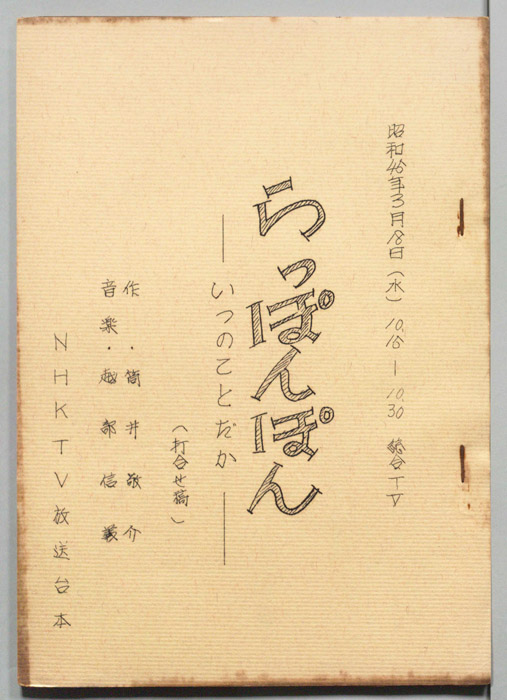 昭和45年3月18日(水) 10.15―10.30 総合TV
らっぽんぽん
―いつのことだか―
(打合せ稿)
作・筒井敬介
音楽・越部信義
NHKTV放送台本